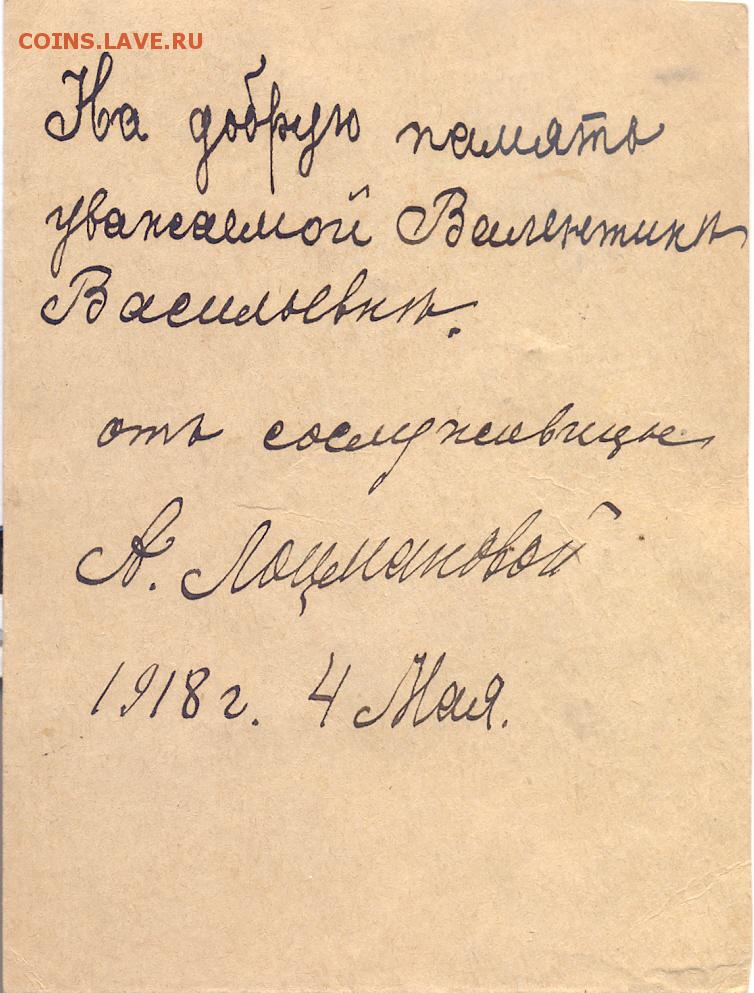 COINS.LAVE.RU
На добрую память
уважаемой Валентинѣ
Васильевнѣ.
отъ сослуживицы
А. Лоцмановой
1918 г. 4 Мая.